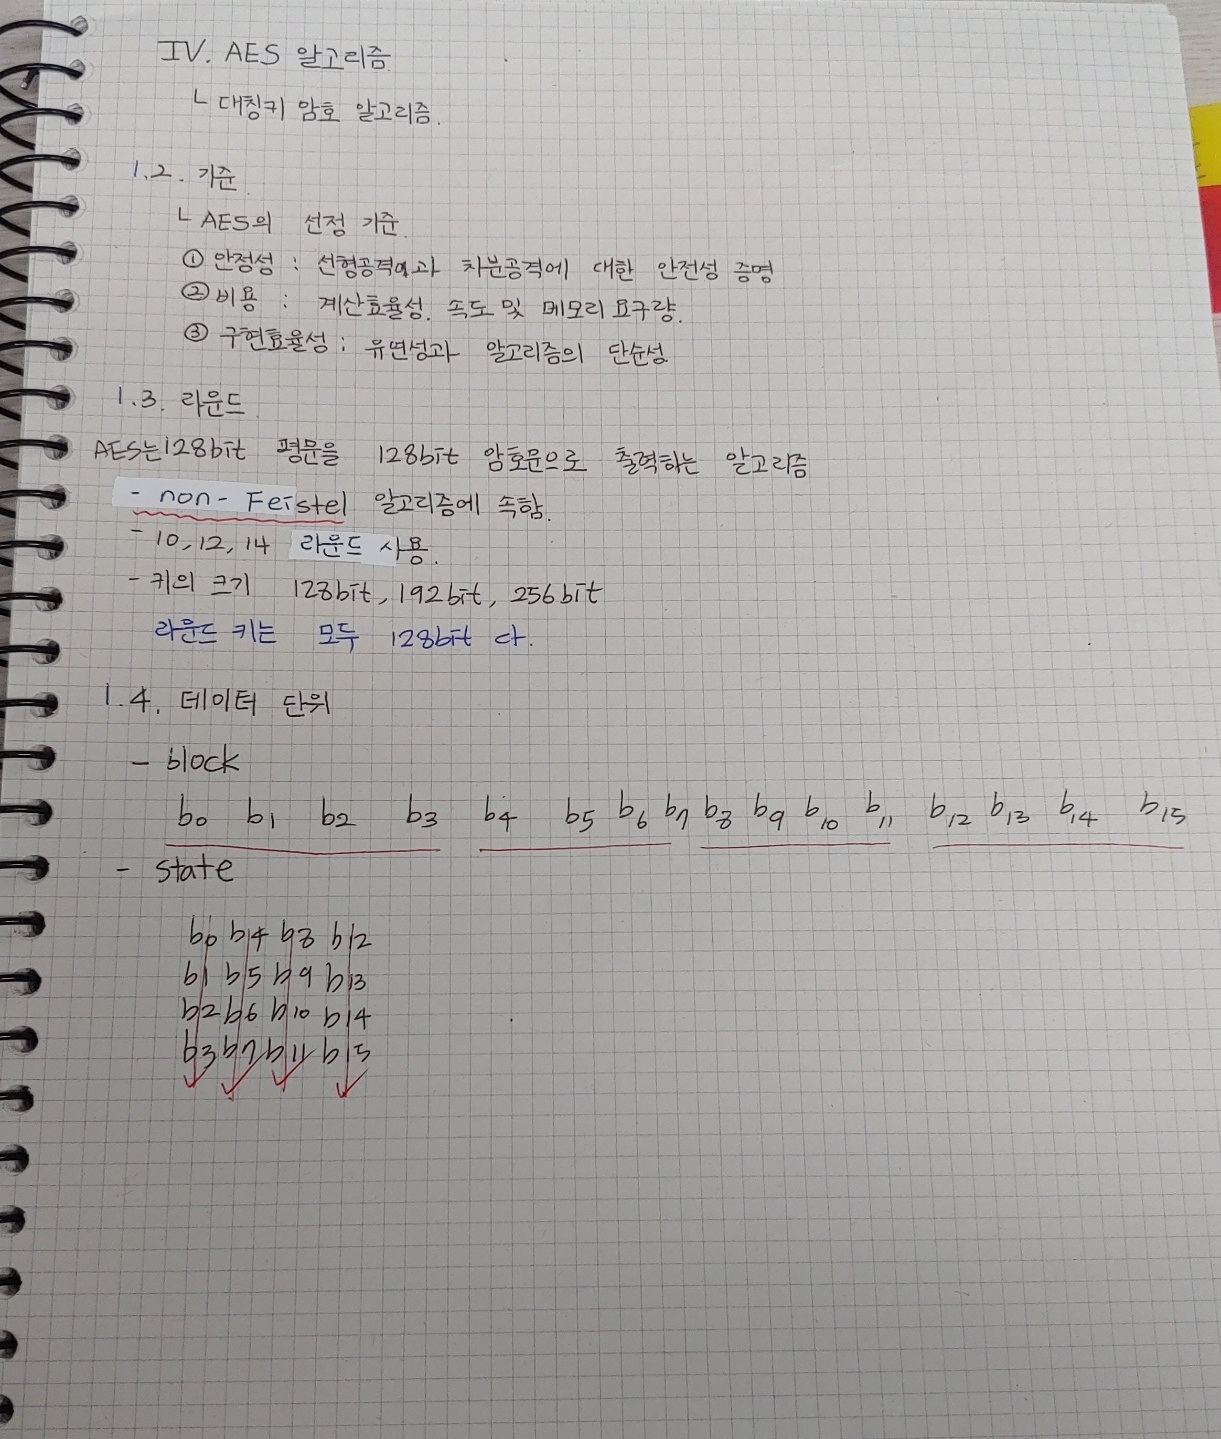 IV. AES 알고리즘
ㄴ 대칭키 암호 알고리즘.
1.2. 기준
ㄴ AES의 선정 기준.
① 안정성 : 선형공격과 차분공격에 대한 안전성 증명
② 비용 : 계산효율성. 속도 및 메모리 요구량.
③ 구현효율성 : 유연성과 알고리즘의 단순성
1.3. 라운드
AES는 128bit 평문을 128bit 암호문으로 출력하는 알고리즘
- non-Feistel 알고리즘에 속함.
- 10, 12, 14 라운드 사용.
- 키의 크기 128bit, 192bit, 256bit
라운드 키는 모두 128bit 다.
1.4. 데이터 단위
- block
b0 b1 b2 b3 b4 b5 b6 b7 b8 b9 b10 b11 b12 b13 b14 b15
- state
b0 b4 b8 b12
b1 b5 b9 b13
b2 b6 b10 b14
b3 b7 b11 b15